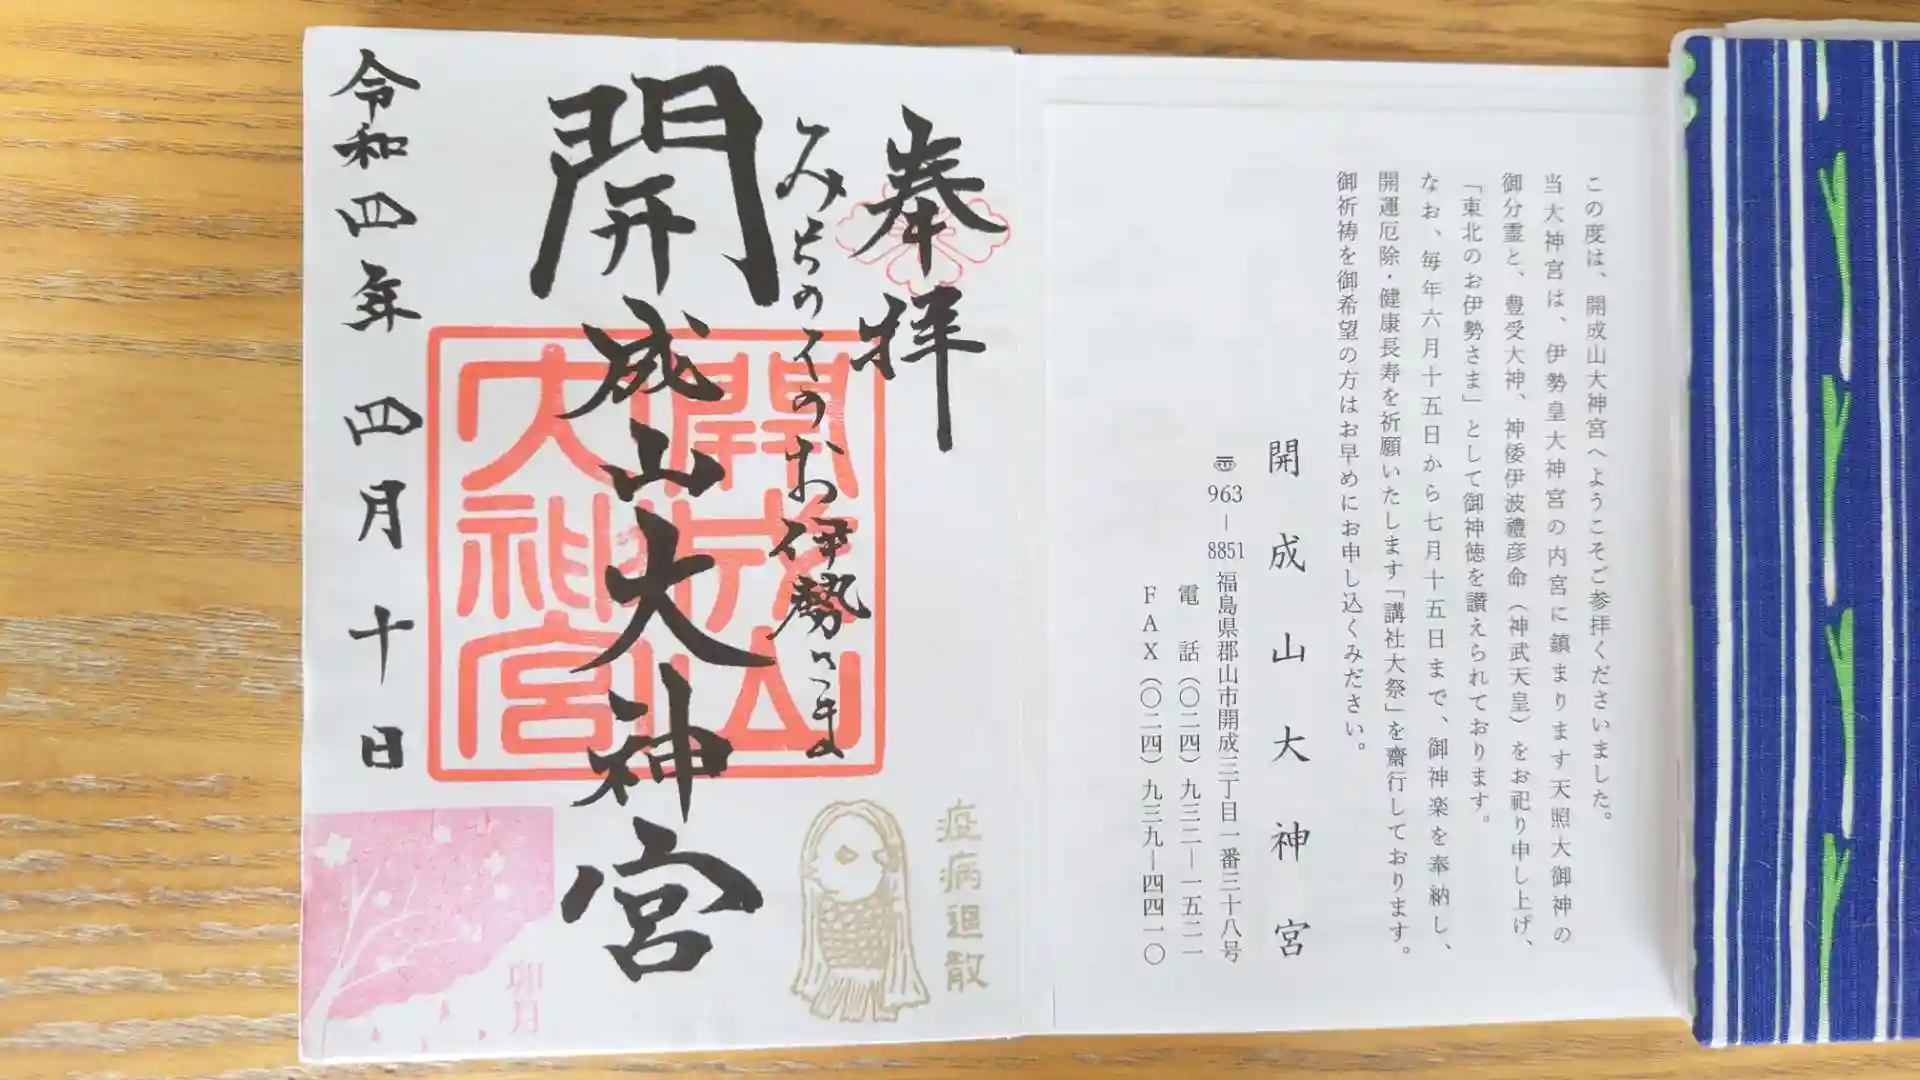 この度は、開成山大神宮へようこそご参拝くださいました。
当大神宮は、伊勢皇大神宮の内宮に鎮まります天照大御神の
御分霊と、豊受大神、神倭伊波禮彦命（神武天皇）をお祀り申し上げ、
「東北のお伊勢さま」として御神徳を讃えられております。
なお、毎年六月十五日から七月十五日まで、御神楽を奉納し、
開運厄除・健康長寿を祈願いたします「講社大祭」を齋行しております。
御祈祷を御希望の方はお早めにお申し込くみださい。
開成山大神宮
〠963－8851 福島県郡山市開成三丁目一番三十八号
電話（〇二四）九三二－一五二一
FAX（〇二四）九三九－四四一〇
奉拝
みちのくのお伊勢さま
開成山大神宮
令和四年四月十日
開成山
大神宮
疫病退散
卯月